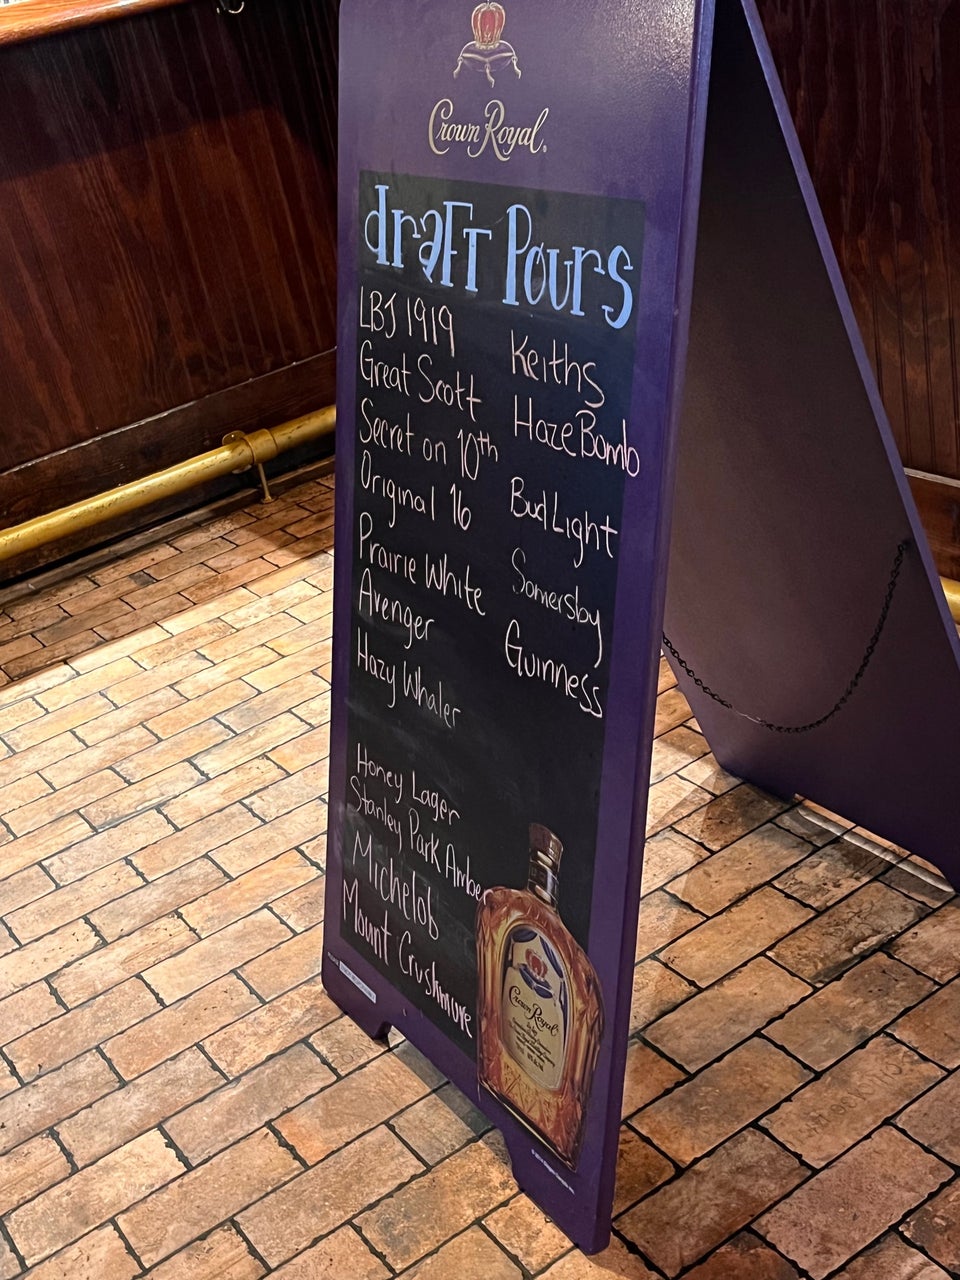 Crown Royal
draft Pours
LBJ 1919
Great Scott
Secret on 10th
Original 16
Prairie White
Avenger
Hazy Whaler
Honey Lager
Stanley Park Amber
Michelob
Mount Crushmore
Keiths
Haze Bomb
Bud Light
Somersby
Guinness
Crown Royal